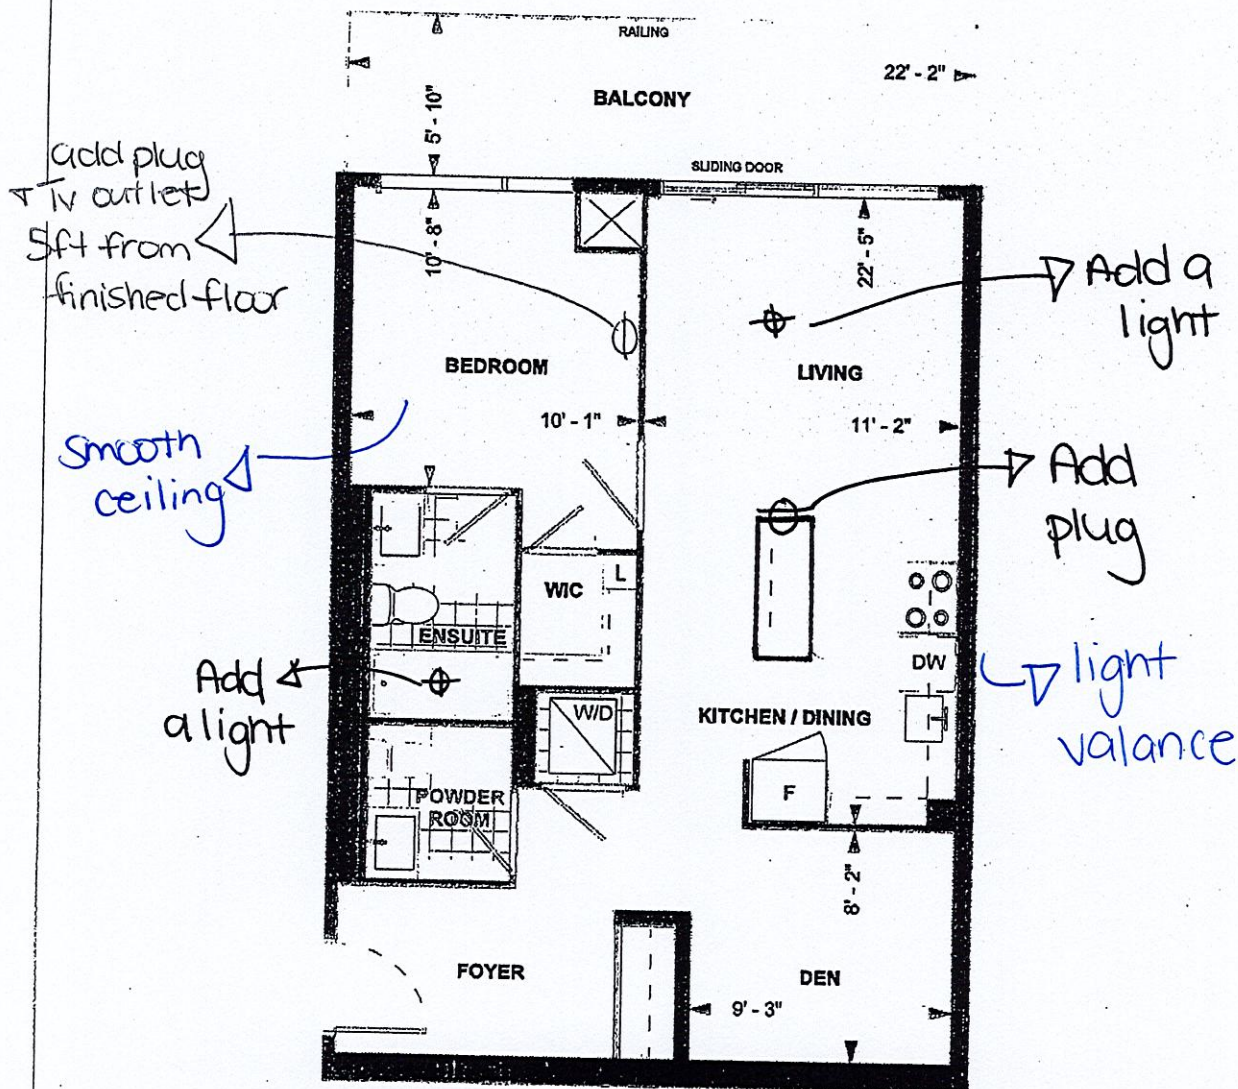 RAILING
22' - 2"
BALCONY
5' - 10"
SLIDING DOOR
add plug
+ TV outlet
5ft from
finished floor
10' - 8"
22' - 5"
Add a
light
BEDROOM
LIVING
10' - 1"
11' - 2"
Smooth
ceiling
Add
plug
WIC
L
ENSUITE
DW
light
valance
Add
a light
W/D
KITCHEN / DINING
POWDER
ROOM
F
8' - 2"
FOYER
DEN
9' - 3"